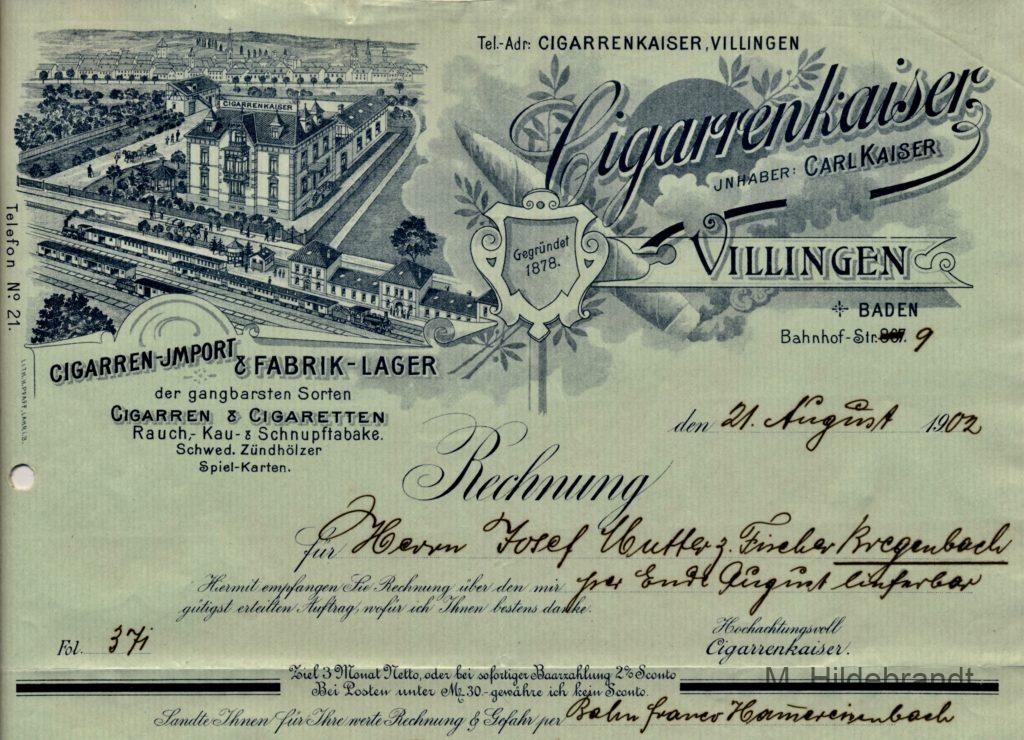 Tel.-Adr: CIGARRENKAISER, VILLINGEN
Cigarrenkaiser
JNHABER: CARL KAISER
VILLINGEN
BADEN
Bahnhof-Str. 9
Gegründet
1878.
CIGARRENKAISER
Telefon No. 21.
CIGARREN-JMPORT & FABRIK-LAGER
der gangbarsten Sorten
CIGARREN & CIGARETTEN
Rauch,- Kau- & Schnupftabake.
Schwed. Zündhölzer
Spiel-Karten.
den 21. August 1902
Rechnung
für Herrn Josef Mutter z. Fischer Bregenbach
Hiermit empfangen Sie Rechnung über den mir per Ende August lieferbar
gütigst erteilten Auftrag, wofür ich Ihnen bestens danke.
Hochachtungsvoll
Cigarrenkaiser.
Fol. 371
Ziel 3 Monat Netto, oder bei sofortiger Baarzahlung 2% Sconto
Bei Posten unter M. 30.- gewähre ich kein Sconto.
M. Hildebrandt
Sandte Ihnen für Ihre werte Rechnung & Gefahr per Bahn franco Hammereisenbach